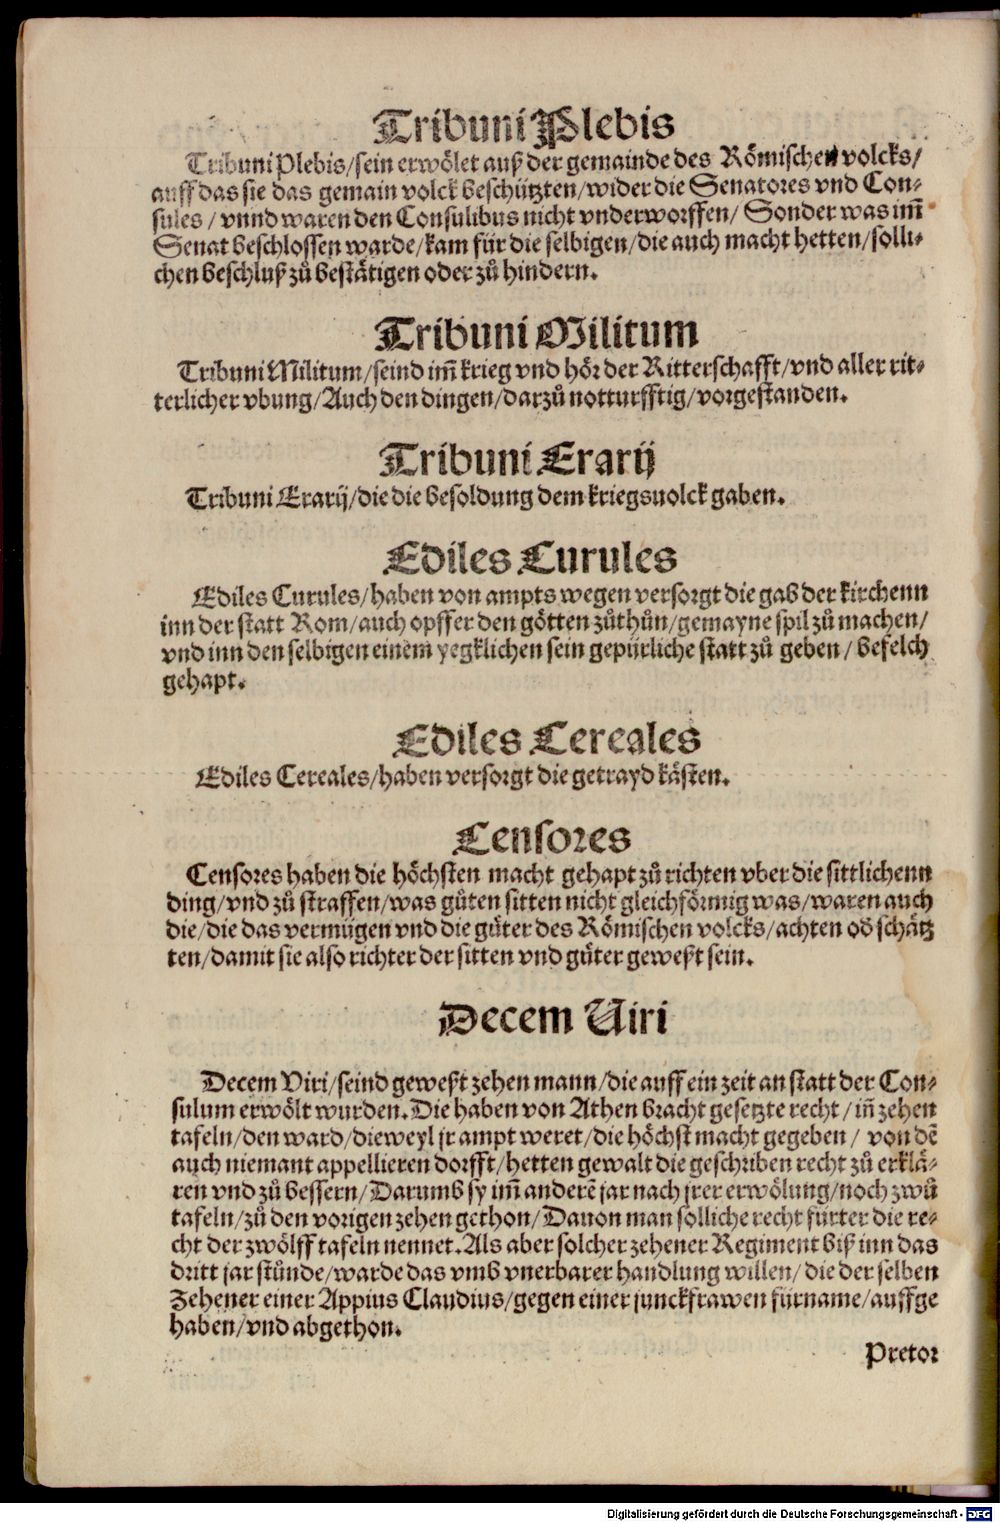 Tribuni Plebis
Tribuni Plebis/sein erwölet auß der gemainde des Römischen volcks/
auff das sie das gemain volck beschützten/wider die Senatores vnd Con⸗
sules/vnnd waren den Consulibus nicht vnderworffen/Sonder was im̃
Senat beschlossen warde/kam für die selbigen/die auch macht hetten/solli⸗
chen beschluß zů bestätigen oder zů hindern.
Tribuni Militum
Tribuni Militum/seind im̃ krieg vnd hör der Ritterschafft/vnd aller rit⸗
terlicher vbung/Auch den dingen/darzů notturfftig/vorgestanden.
Tribuni Erarij
Tribuni Erarij/die die besoldung dem kriegsuolck gaben.
Ediles Curules
Ediles Curules/haben von ampts wegen versorgt die gab der kirchenn
inn der statt Rom/auch opffer den götten zůthůn/gemayne spil zů machen/
vnd inn den selbigen einem yegklichen sein gepürliche statt zů geben/befelch
gehapt.
Ediles Cereales
Ediles Cereales/haben versorgt die getrayd kästen.
Censores
Censores haben die höchsten macht gehapt zů richten vber die sittlichenn
ding/vnd zů straffen/was gůten sitten nicht gleichförmig was/waren auch
die/die das vermügen vnd die güter des Römischen volcks/achten od̃ schätz
ten/damit sie also richter der sitten vnd güter geweßt sein.
Decem Viri
Decem Viri/seind geweßt zehen mann/die auff ein zeit an statt der Con⸗
sulum erwölt wurden.Die haben von Athen bracht gesetzte recht/iñ zehen
tafeln/den ward/dieweyl jr ampt weret/die höchst macht gegeben/von dẽ
auch niemant appellieren dorfft/hetten gewalt die geschriben recht zů erklä⸗
ren vnd zů bessern/Darumb sy im̃ anderẽ jar nach jrer erwölung/noch zwů
tafeln/zů den vorigen zehen gethon/Dauon man solliche recht fürter die re⸗
cht der zwölff tafeln nennet.Als aber solcher zehener Regiment biß inn das
dritt jar stůnde/warde das vmb vnerbarer handlung willen/die der selben
Zehener einer Appius Claudius/gegen einer junckfrawen fürname/auffge
haben/vnd abgethon.
Pretor
Digitalisierung gefördert durch die Deutsche Forschungsgemeinschaft - DFG